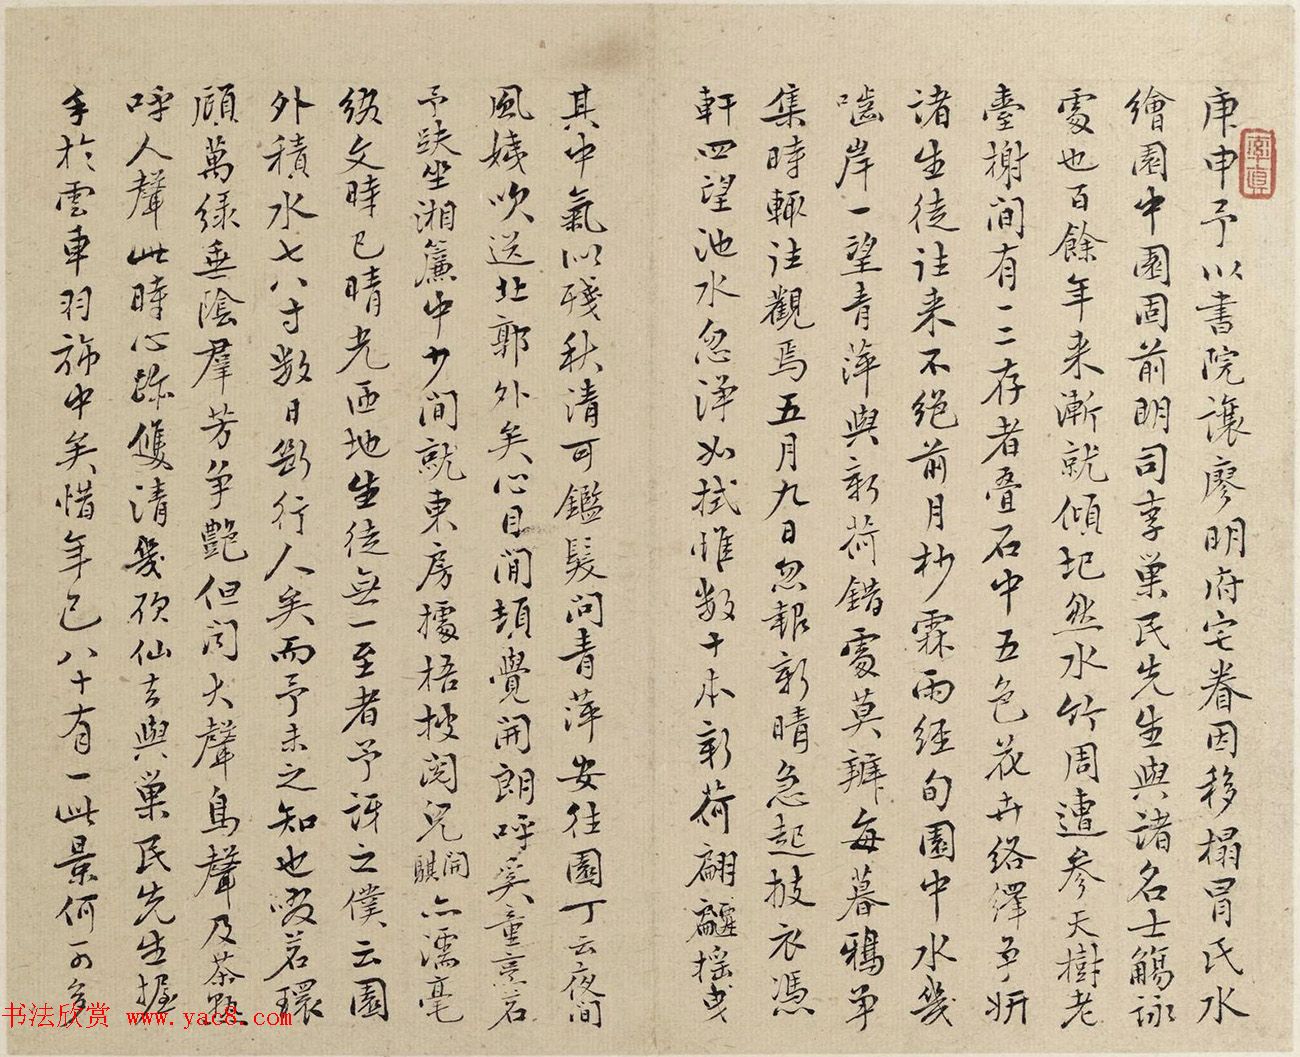 庚申予以書院讓廖明府宅眷因移榻冒氏水
繪園中園固前明司李巢民先生與諸名士觴詠
處也百餘年来漸就傾圮然水竹周遭參天樹老
臺榭間有一二存者叠石中五色花卉絡繹爭妍
諸生徒往来不絕前月杪霖雨經旬園中水幾
嚙岸一望青萍與新荷錯處莫辨每暮鴉爭
集時輒往觀焉五月九日忽報新晴急起披衣憑
軒四望池水忽淨如拭惟数十本新荷翩躚摇曳
其中氣似殘秋清可鑑髮問青萍安往園丁云夜間
風姨吹送北郭外矣心目間頓覺開朗呼奚童烹茗
予趺坐湘簾中少間就東房據梧披閱兒開騏亦濡毫
綴文時已晴光洒地生徒無一至者予訝之僕云園
外積水七八寸数日斷行人矣而予未之知也啜茗環
顧萬緑垂陰羣芳争艷但闻犬聲鳥聲及茶熟
呼人聲此時心跡雙清幾欲仙去與巢民先生握
手於雲車羽旆中矣惜年已八十有一此景何可多
书法欣赏 www.yac8.com